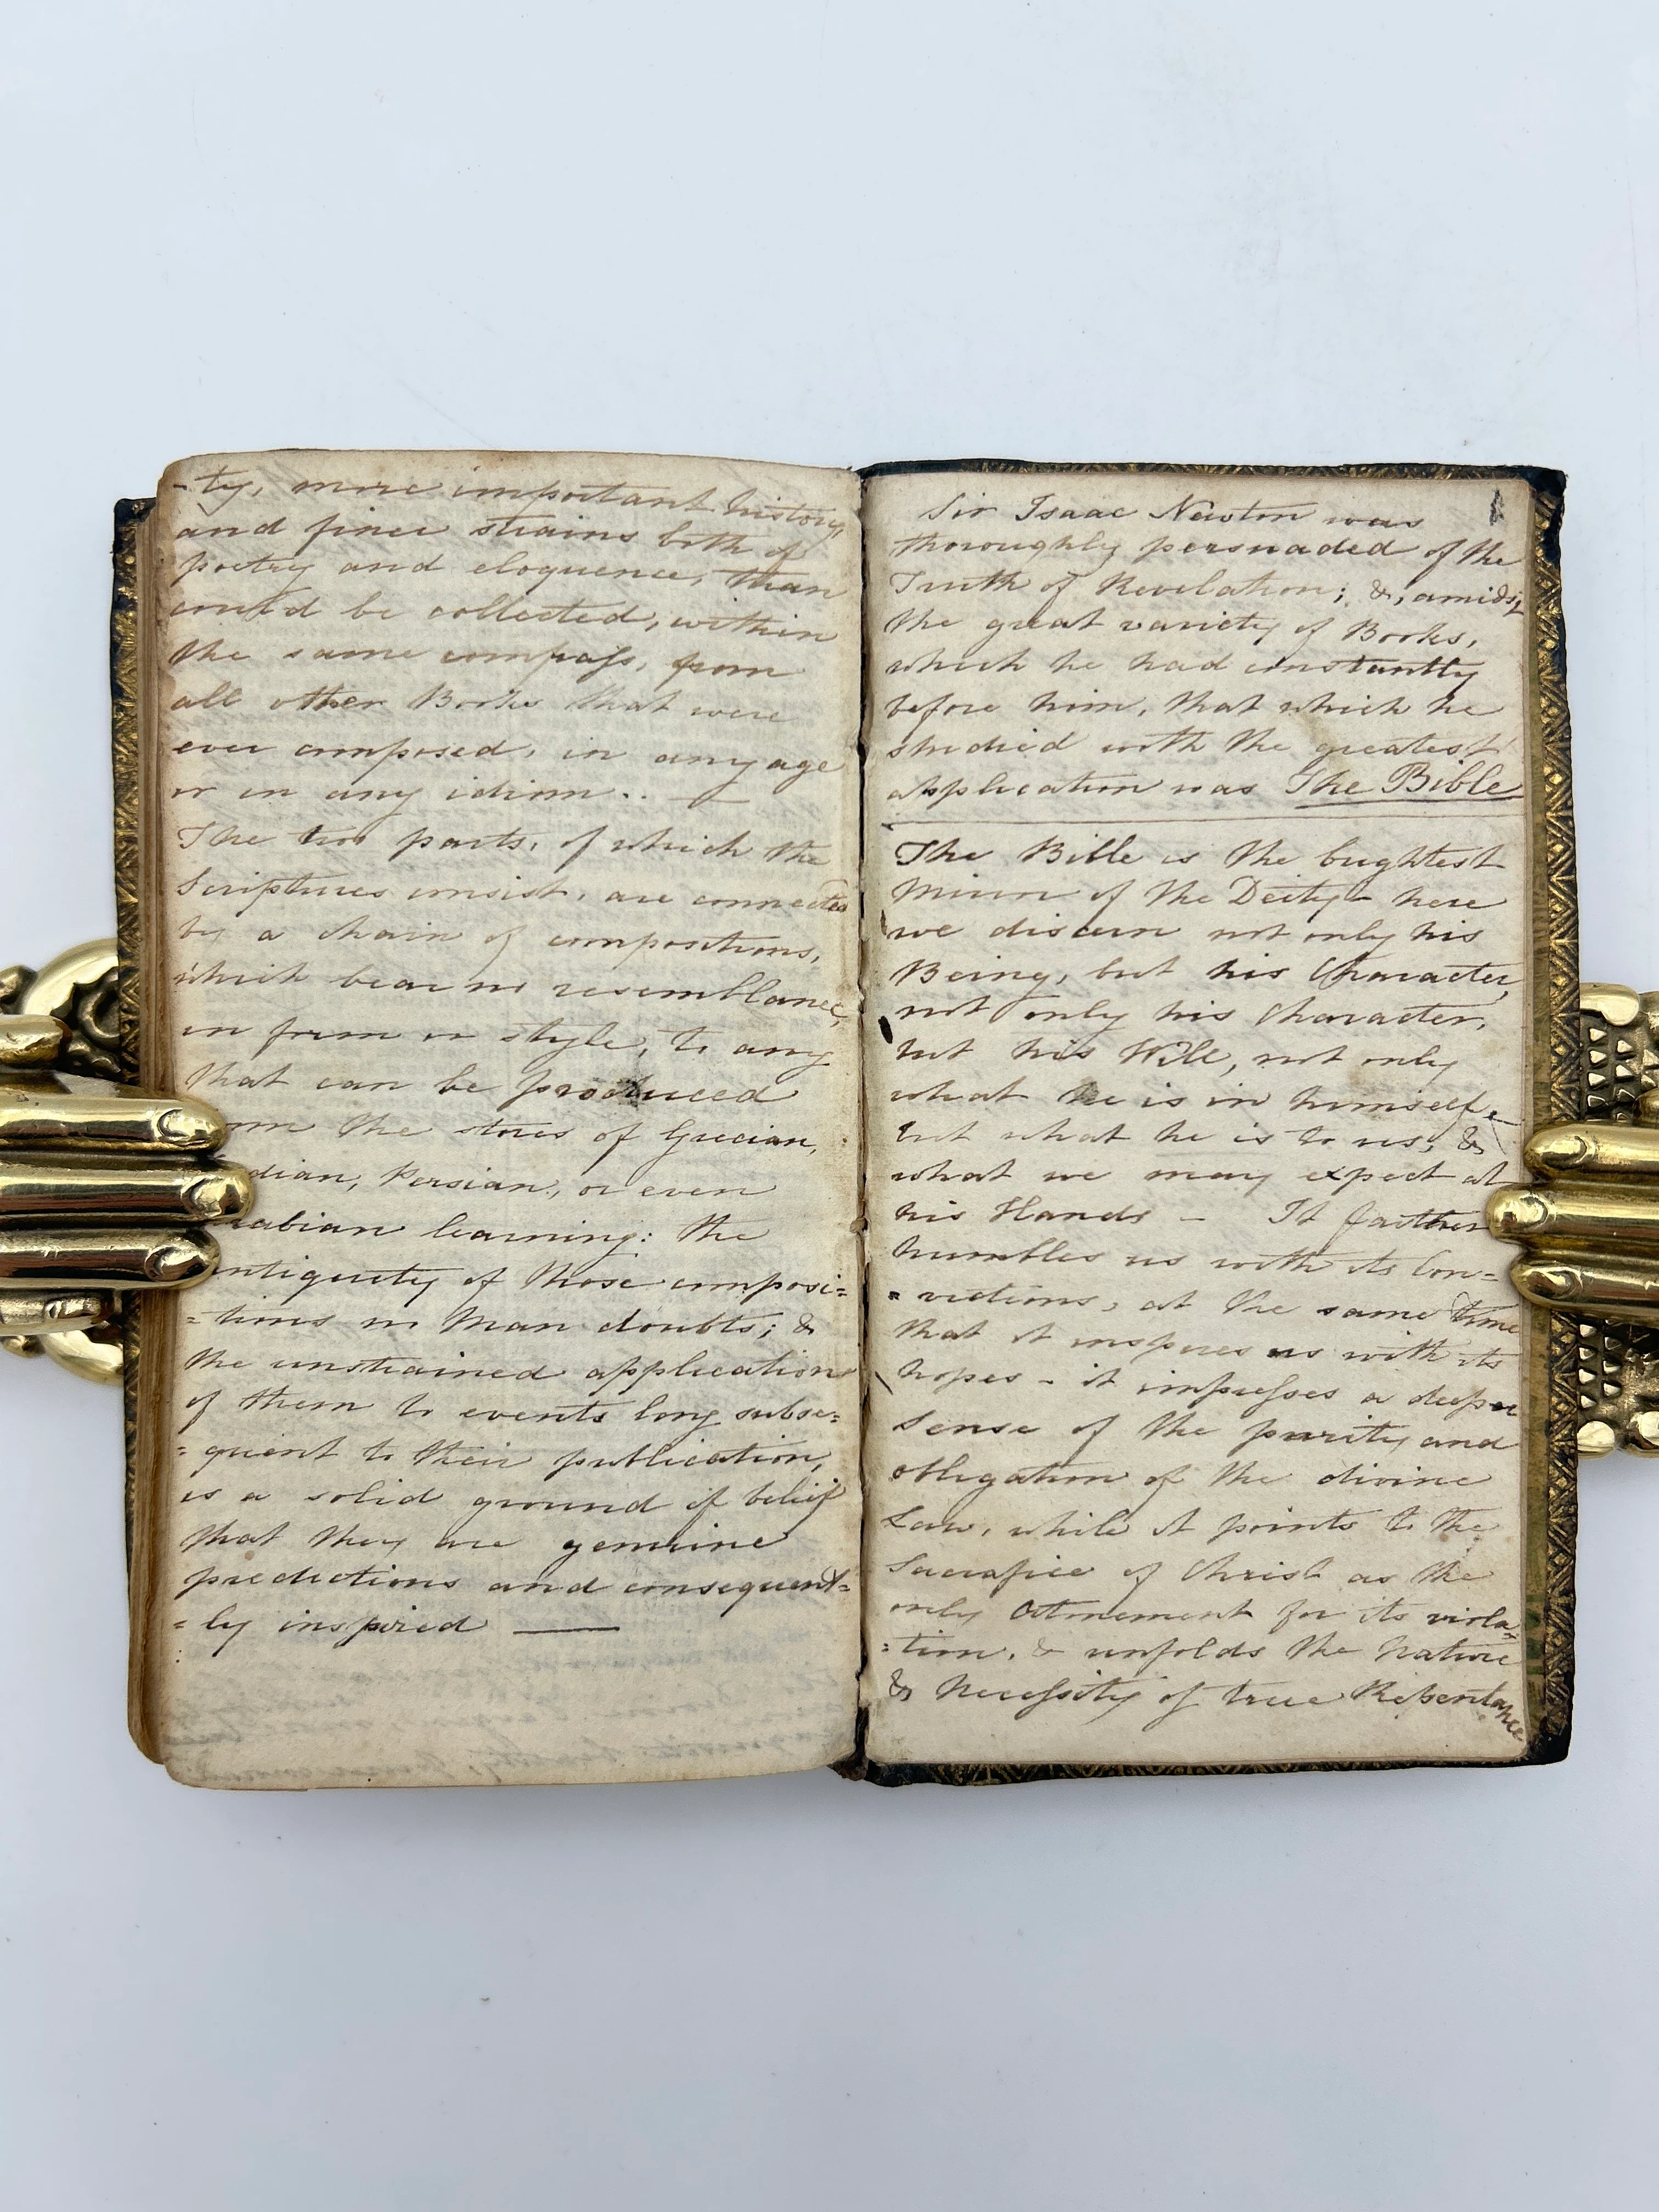 -ty, more important history,
and finer strains both of
poetry and eloquence, than
could be collected, within
the same compass, from
all other Books that were
ever composed, in any age
or in any idiom.. —
The two parts, of which the
Scriptures consist, are connected
by a chain of compositions,
which bear no resemblance,
in form or style, to any
that can be produced
om the stores of Grecian,
dian, Persian, or even
rabian learning: the
antiquity of those composi=
=tions no Man doubts; &
the unstrained application
of them to events long subse=
=quent to their publication,
is a solid ground of belief
that they are genuine
predictions and consequent=
=ly inspired —
Sir Isaac Newton was
thoroughly persuaded of the
Truth of Revelation; &, amidst
the great variety of Books,
which he had constantly
before him, that which he
studied with the greatest
application was The Bible
The Bible is the brightest
Mirror of the Deity - here
we discern not only his
Being, but his Character,
not only his Character,
but his Will, not only
what he is in himself,
but what he is to us, &
what we may expect at
his Hands - It farther
humbles us with its Con=
=victions, at the same time
that it inspires us with its
hopes - it impresses a deeper
Sense of the purity and
obligation of the divine
Law, while it points to the
Sacrafice of Christ as the
only Atonement for its viola=
=tion, & unfolds the Nature
& Necessity of true Repentance